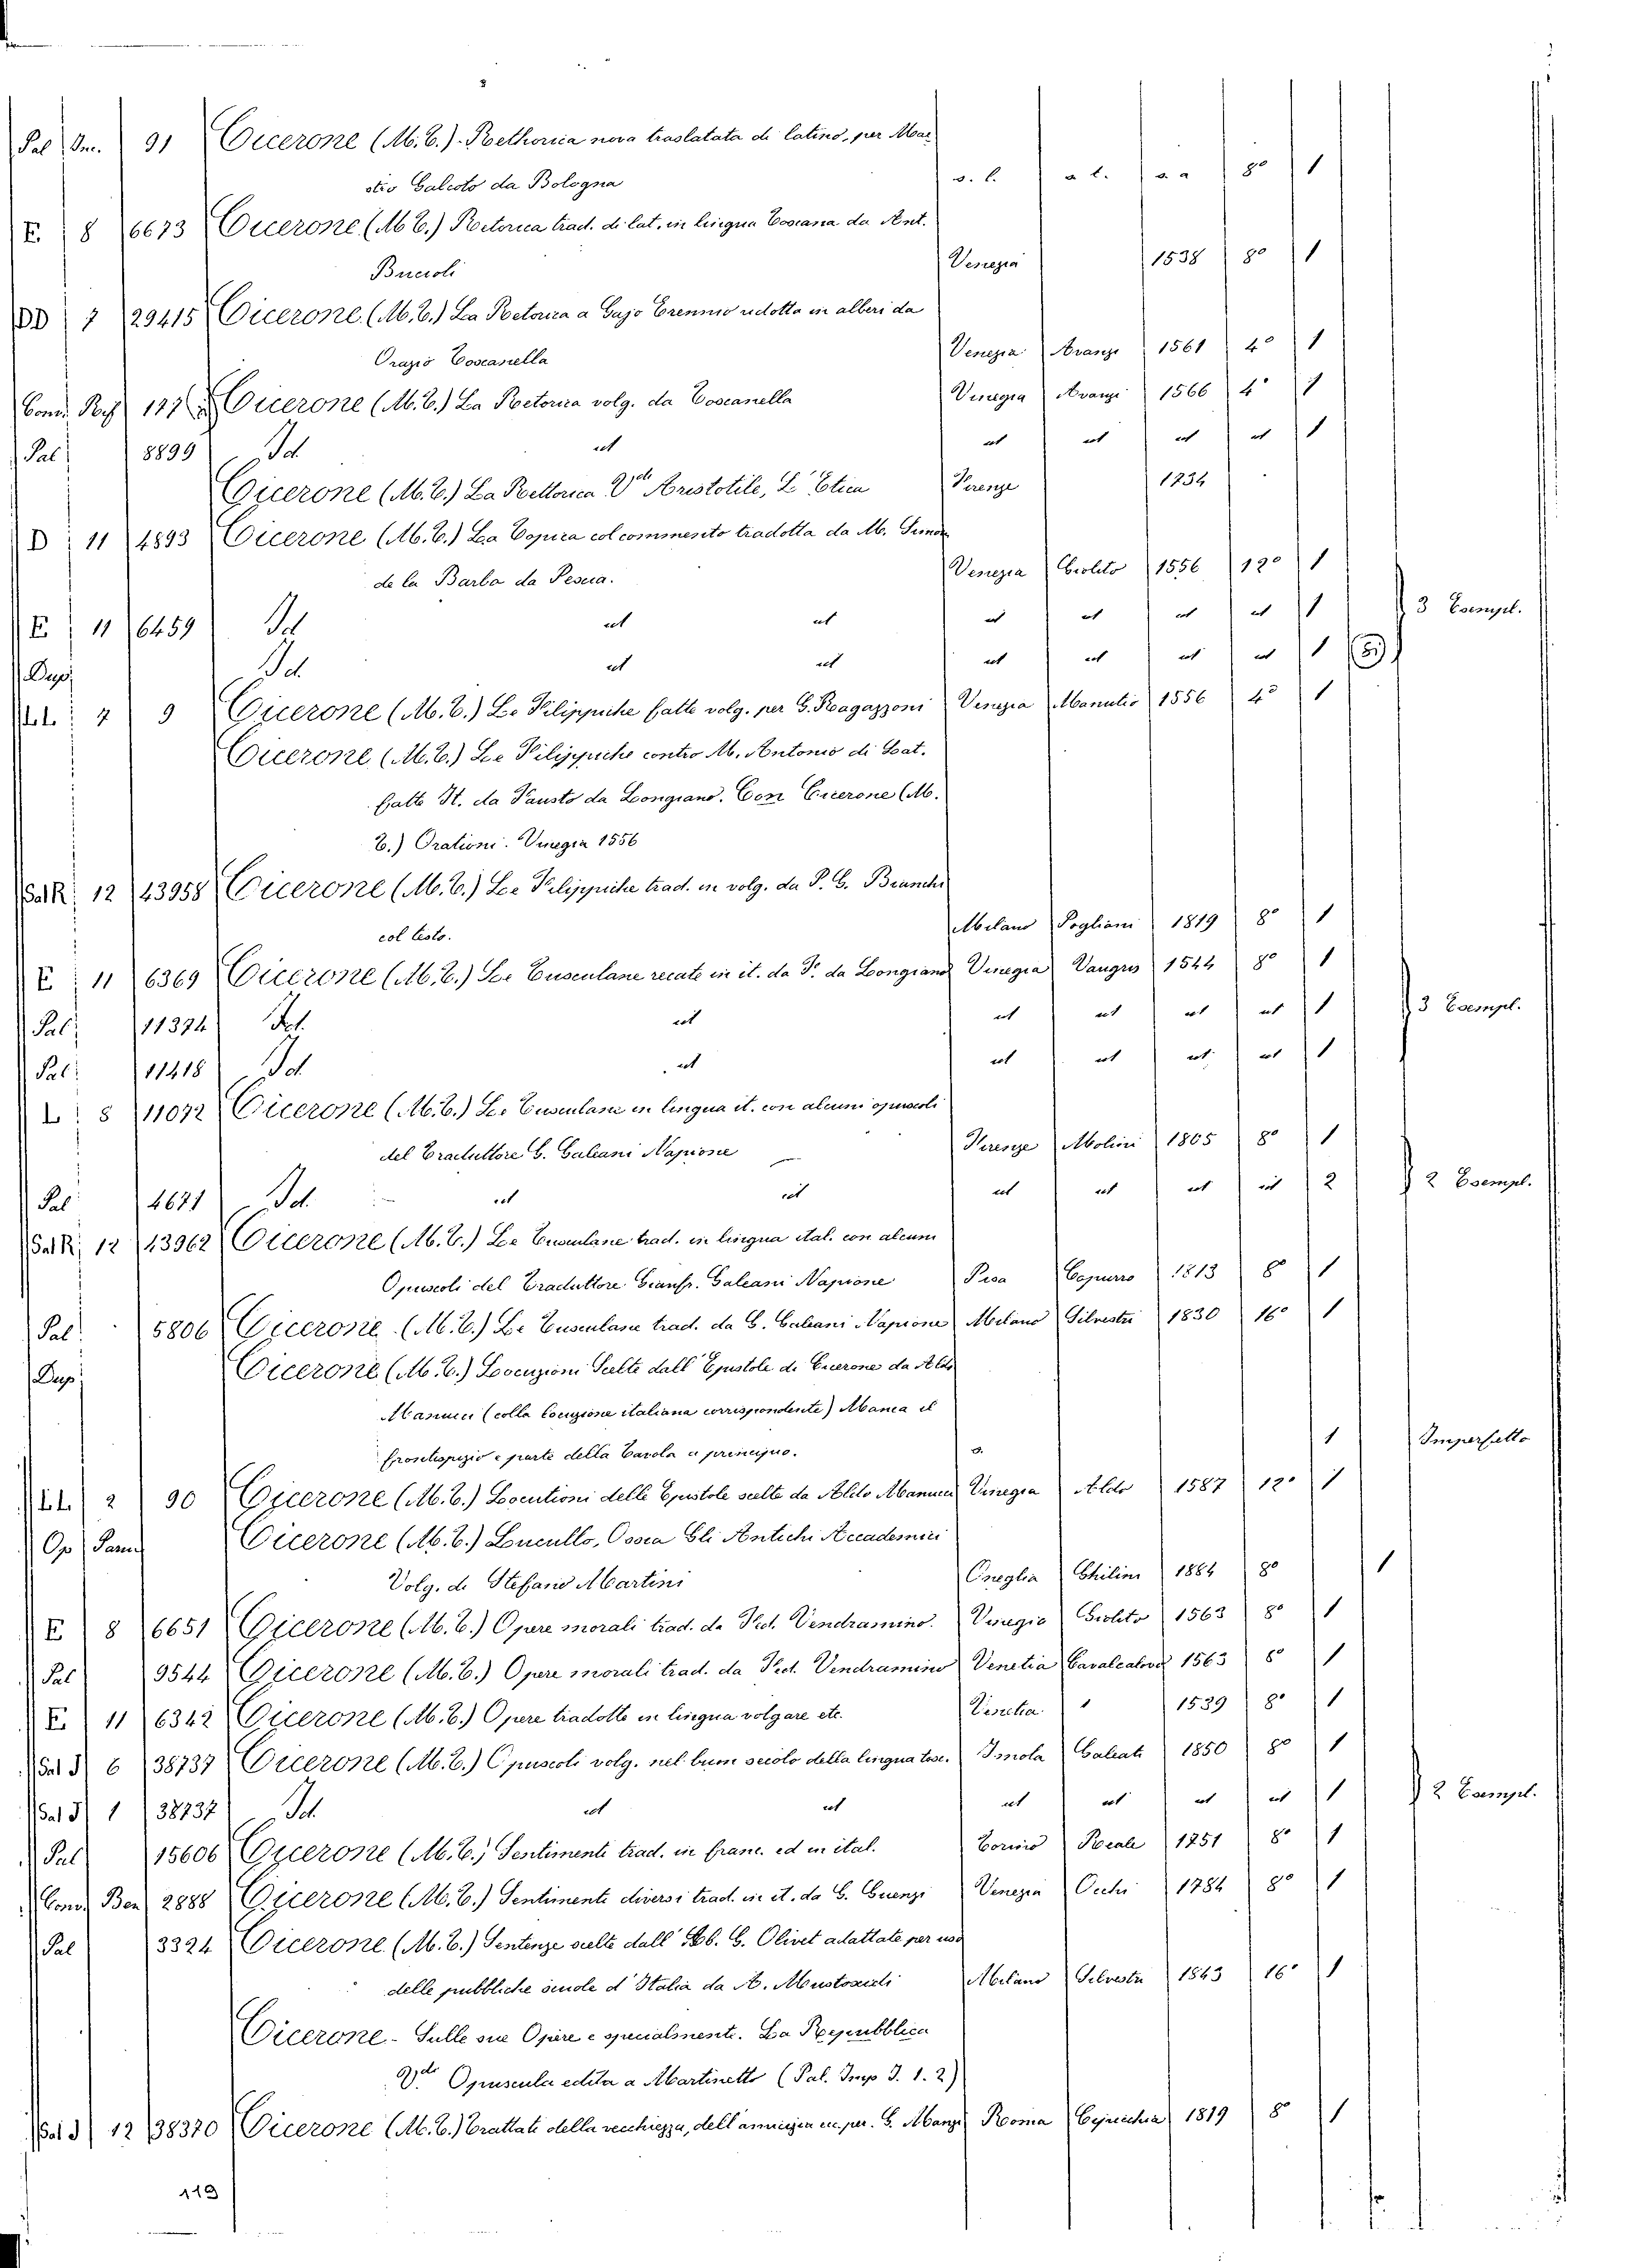 Pal Inc. 91 Cicerone (M. C.) - Rethorica nova traslatata di latino, per Mae-
stro Galeoto da Bologna s. l. a t. s. a 8º 1
E 8 6673 Cicerone (M C.) Retorica trad. di lat. in lingua Toscana da Ant.
Brucioli Venezia 1538 8º 1
DD 7 29415 Cicerone (M. C.) La Retorica a Gajo Erennio ridotta in alberi da
Orazio Toscanella Venezia Avanzi 1561 4º 1
Cons. 117 Cicerone (M. C.) La Retorica volg. da Toscanella Venezia Avanzi 1566 4º 1
Pal 8899 Id. id id id id id 1
Cicerone (M. C.) La Rettorica Vde Aristotile, L'Etica Firenze 1734
D 11 4893 Cicerone (M. C.) La Topica col commento tradotta da M. Simon
de la Barba da Pescia. Venezia Giolito 1556 12º 1
E 11 6459 Id id id id id id id 1 3 Esempl.
Dup. Id. id id id id id id 1
7 9 Cicerone (M. C.) Le Filippiche fatte volg. per G. Ragazzoni Venezia Manutio 1556 4º 1
Cicerone (M. C.) Le Filippiche contro M. Antonio di Lat.
fatte It. da Fausto da Longiano. Con Cicerone (M.
C.) Orationi. Vinegia 1556
Sal R. 12 43958 Cicerone (M. C.) Le Filippiche trad. in volg. da P. G. Bianchi
col testo. Milano Pogliani 1819 8º 1
E 11 6369 Cicerone (M. C.) Le Tusculane recate in it. da F. da Longiano Vinegia Vaugris 1544 8º 1
Pal. 11374 Id. id id id id id 1 3 Esempl.
Pal. 11418 Id id id id id id 1
L 8 11072 Cicerone (M. C.) Le Tusculane in lingua it. con alcuni opuscoli
del Traduttore G. Galeani Napione Firenze Molini 1805 8º 1
Pal 4671 Id. id id id id id id 2 2 Esempl.
Sal R. 12 43962 Cicerone (M. C.) Le Tusculane trad. in lingua ital. con alcuni
Opuscoli del Traduttore Gianfr. Galeani Napione Pisa Capurro 1813 8º 1
Pal. 5806 Cicerone (M. C.) Le Tusculane trad. da G. Galeani Napione Milano Silvestri 1830 16º 1
Dup. Cicerone (M. C.) Locuzioni Scelte dall'Epistole di Cicerone da Aldo
Manucci (colla Locuzione italiana corrispondente) Manca il
frontispizio e parte della Tavola a principio. 1 Imperfetto
2 90 Cicerone (M. C.) Locutioni delle Epistole scelte da Aldo Manucci Vinegia Aldo 1587 12º 1
Op Cicerone (M. C.) Lucullo, Ossia Gli Antichi Accademici
Volg. di Stefano Martini Oneglia Ghilini 1884 8º 1
E 8 6651 Cicerone (M. C.) Opere morali trad. da Fed. Vendramino. Vinegia Giolito 1563 8º 1
Pal 9544 Cicerone (M. C.) Opere morali trad. da Fed. Vendramino Venetia Cavalcalovo 1563 8º 1
E 11 6342 Cicerone (M. C.) Opere tradotte in lingua volgare etc. Venetia 1539 8º 1
Sal J 6 38737 Cicerone (M. C.) Opuscoli volg. nel buon secolo della lingua tosc. Imola Galeati 1850 8º 1
Sal J 1 38737 Id. id id id id id id 1 2 Esempl.
Pal 15606 Cicerone (M. C.) Sentimenti trad. in franc. ed in ital. Torino Reale 1751 8º 1
Cons. Ben 2888 Cicerone (M. C.) Sentimenti diversi trad. in it. da G. Guenzi Venezia Occhi 1784 8º 1
Pal 3324 Cicerone (M. C.) Sentenze scelte dall'Ab. G. Olivet adattate per uso
delle pubbliche scuole d'Italia da A. Mustoxidi Milano Silvestri 1843 16º 1
Cicerone - Sulle sue Opere e specialmente. La Repubblica
Vde Opuscula edita a Martinetto (Pal. Imp J. 1. 2)
Sal J 12 38370 Cicerone (M. C.) Trattati della vecchiezza, dell'amicizia per. G. Manzi Roma 1819 8º 1
119